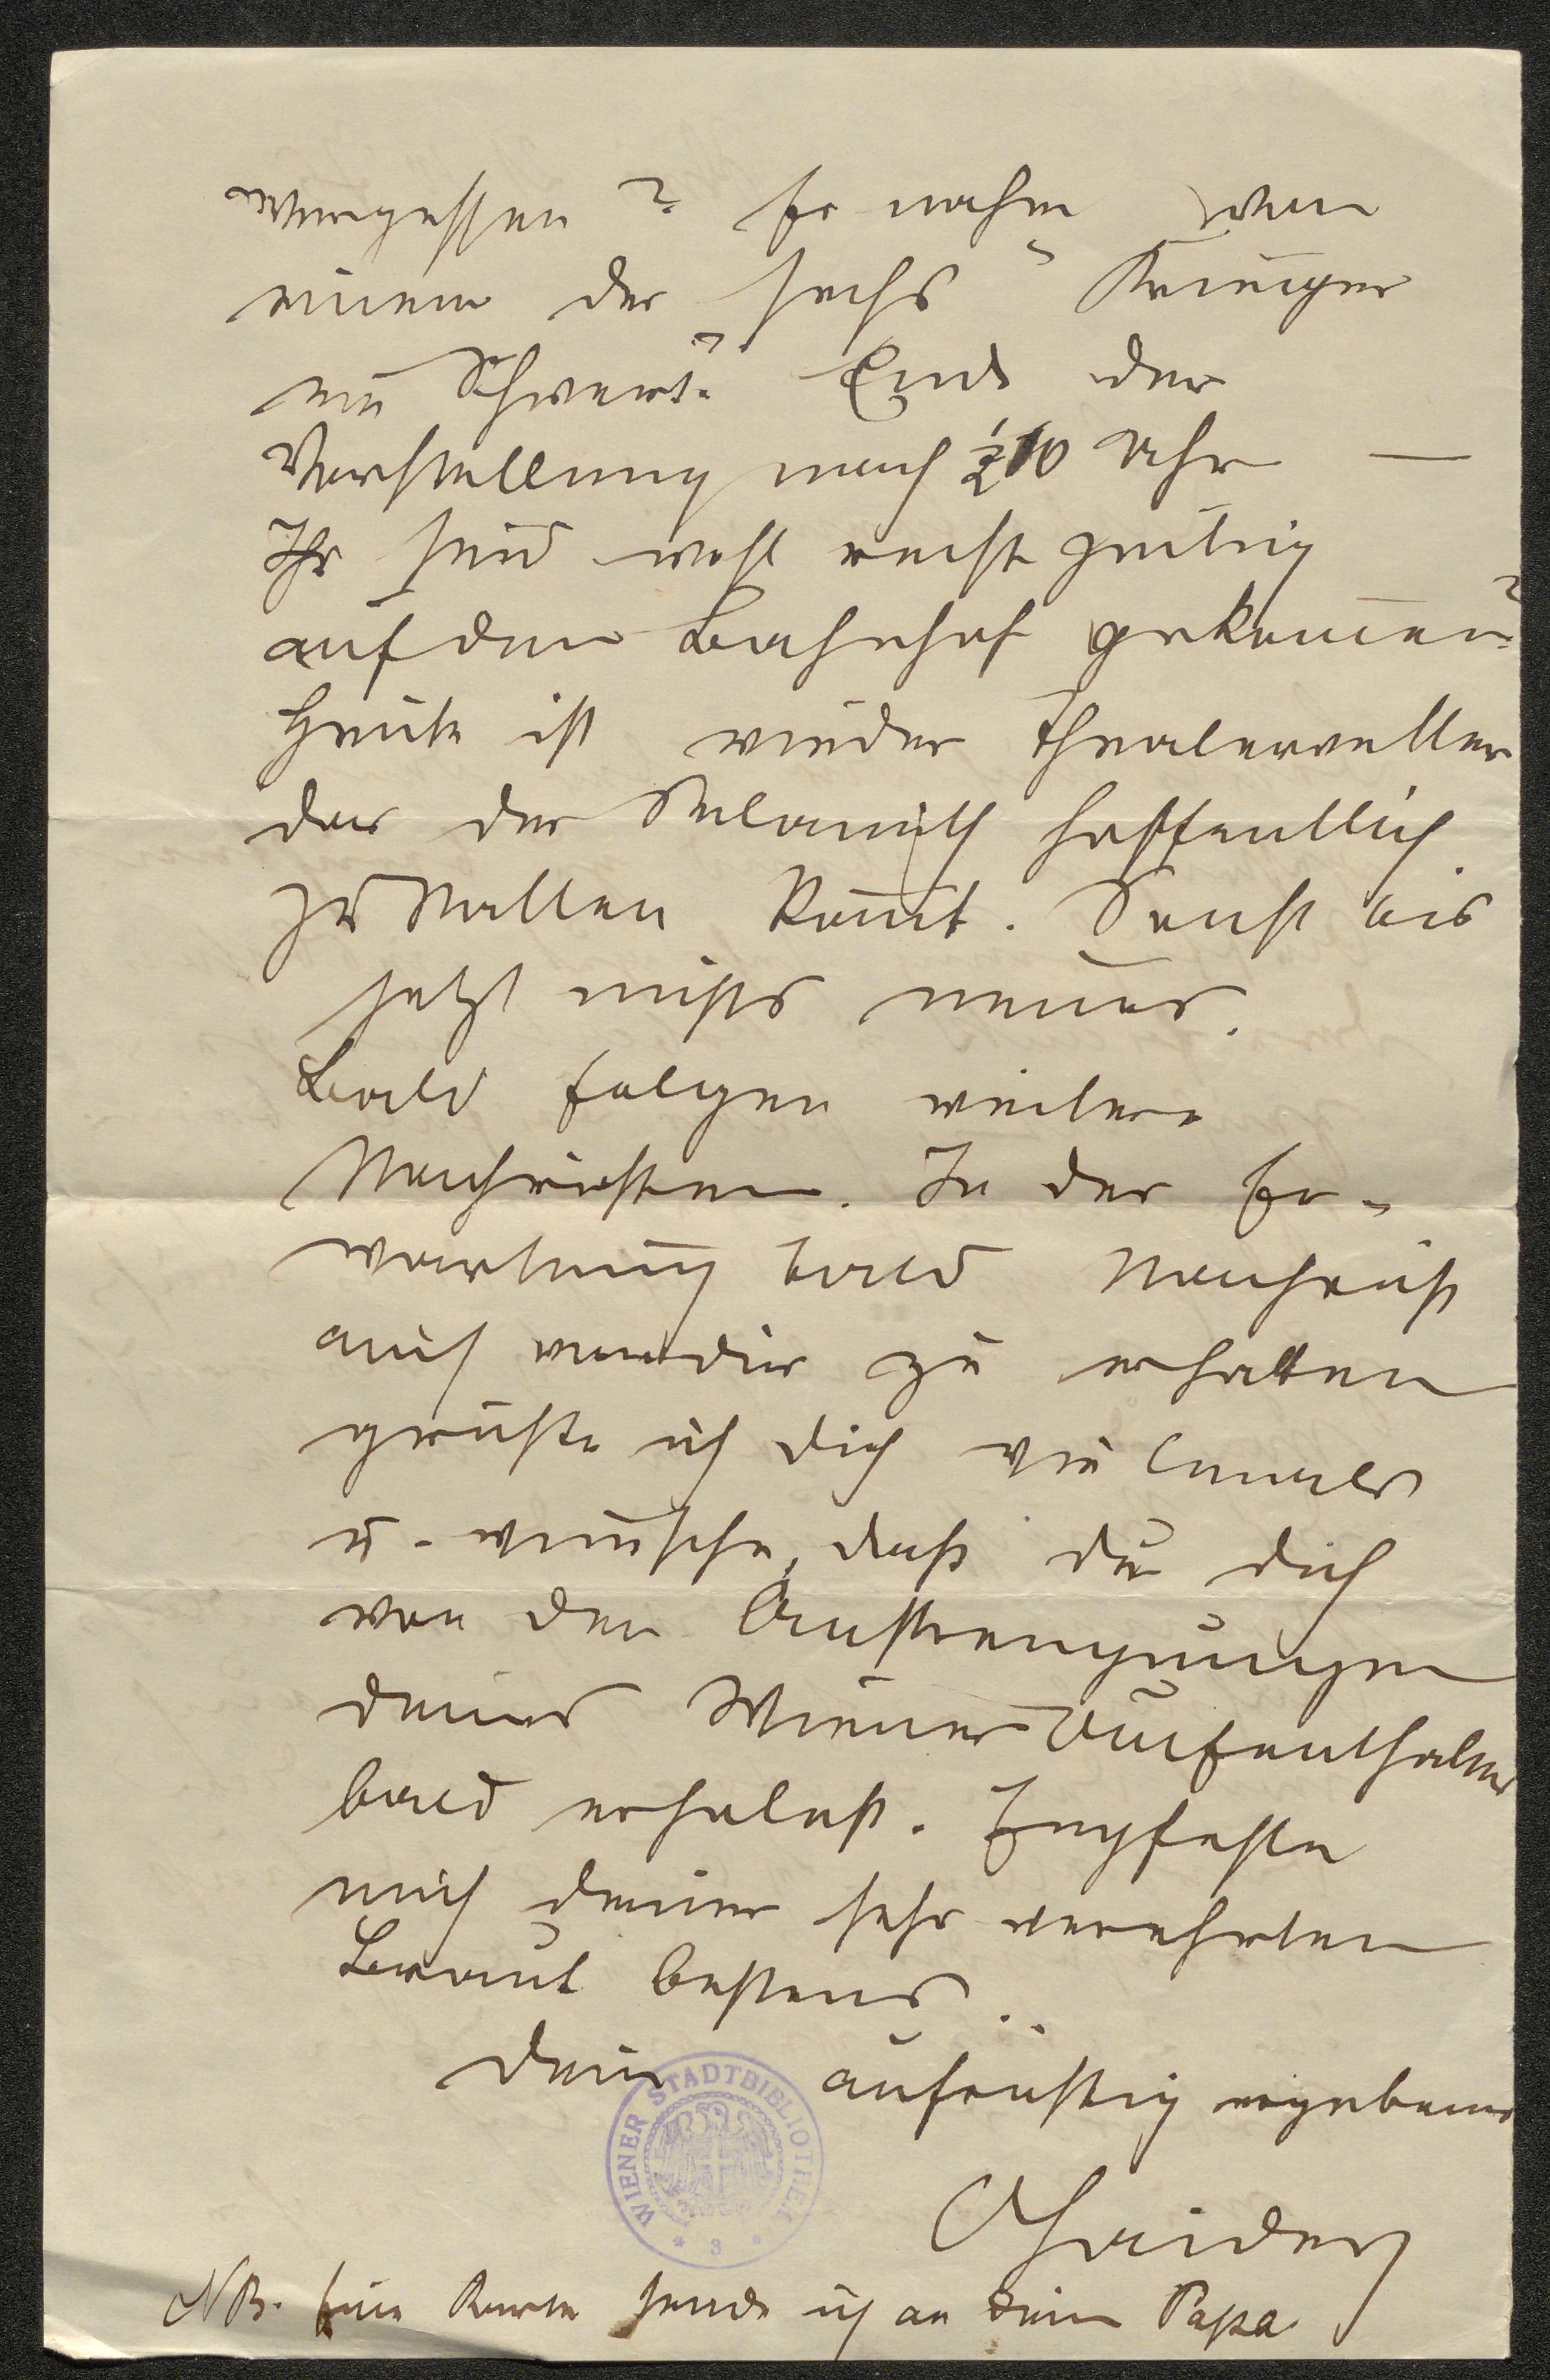 vergessen? Er nahm von
einem der sechs Krieger
ein Schwert? Ende der
Vorstellung nach ½10 Uhr —
Ihr seid wohl recht zeitig
auf den Bahnhof gekom̄en?
Heute ist wieder Theaterwetter
das der Sulamith hoffentlich
zu Statten kom̄t. Sonst bis
jetzt nichts neues.
Bald folgen weitere
Nachrichten. In der Er-
wartung bald Nachricht
auch von dir zu erhalten
grüße ich dich vielmals
u. wünsche, daß du dich
von den Anstrengungen
deines Wiener Aufenthaltes
bald erholest. Empfehle
mich deiner sehr verehrten
Braut bestens.
Dein aufrichtig ergebener
WIENER STADTBIBLIOTHEK
* 3 *
NB. Eine Karte sende ich an deinen Papa